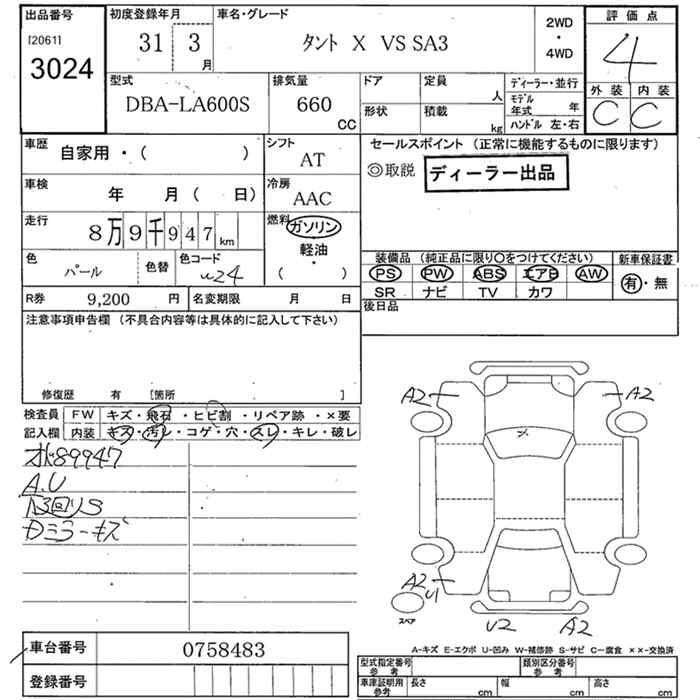 出品番号
[2061]
3024
初度登録年月
31 3月
車名・グレード
タント X VS SA3
2WD
・
4WD
評価点
4
外装 内装
C C
型式
DBA-LA600S
排気量
660
CC
ドア
定員
人
形状
積載
kg
ディーラー・並行
モデル年式 年
ハンドル 左・右
車歴
自家用・( )
シフト
AT
車検
年 月( 日)
冷房
AAC
走行
8万9千947km
燃料
ガソリン
軽油・
( )
色
パール
色替
色コード
W24
R券 9,200 円
名変期限 月 日
セールスポイント (正常に機能するものに限ります)
◎取説 ディーラー出品
装備品 (純正品に限り〇をつけてください)
PS PW ABS エアB AW
SR ナビ TV カワ
新車保証書
有・無
後日品
注意事項申告欄 (不具合内容等は具体的に記入して下さい)
修復歴 有 [箇所 ]
検査員
記入欄
FW キズ・飛石・ヒビ割・リペア跡・×要
内装 キズ・汚レ・コゲ・穴・スレ・キレ・破レ
89947
A.U
Dミラーキズ
A2 A2
×
A2
U1
スペア
U2 A2
A-キズ E-エクボ U-凹み W-補修跡 S-サビ C-腐食 ××-交換済
車台番号 0758483
登録番号
型式指定番号
参考
類別区分番号
参考
車庫証明用
参考
長さ cm
幅 cm
高さ cm